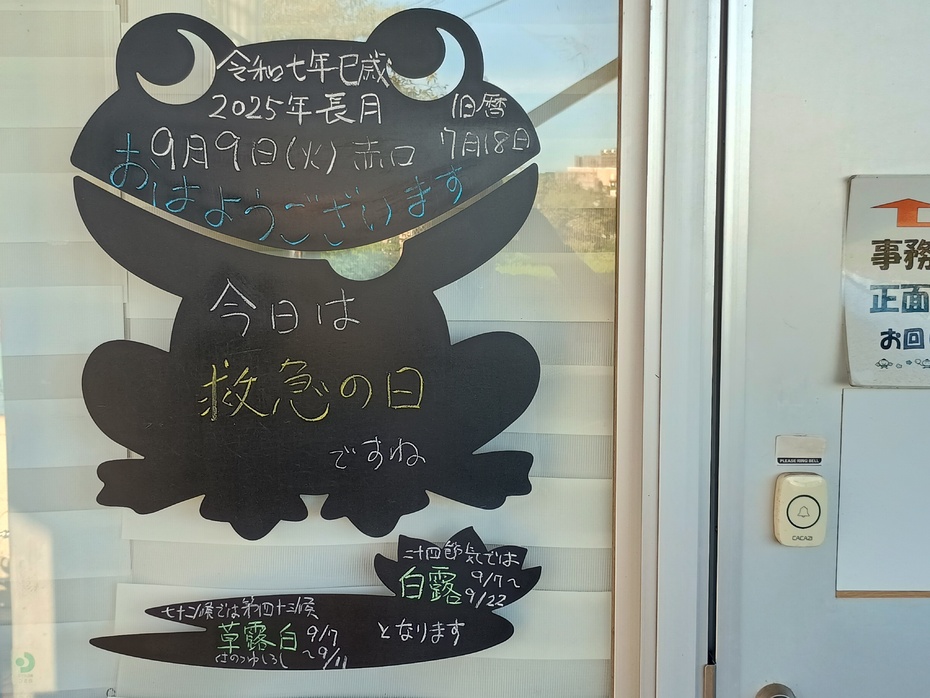 令和七年巳歳
2025年長月
旧暦
9月9日(火)赤口
7月18日
おはようございます
今日は
救急の日
ですね
二十四節気では
白露
9/7～
9/22
七十二候では第四十三候
草露白
9/7
～9/11
くさのつゆしろし
となります
事務
正面
お回
PLEASE RING BELL
CACAZI